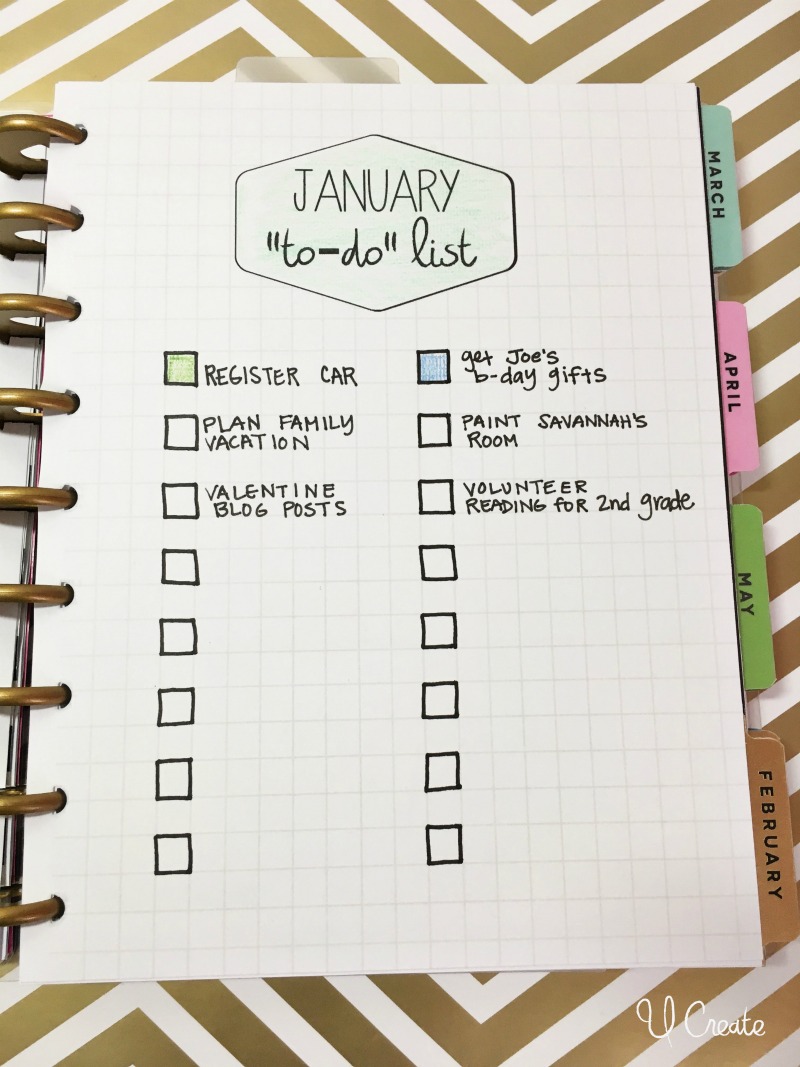 JANUARY
"to-do" list
REGISTER CAR
PLAN FAMILY
VACATION
VALENTINE
BLOG POSTS
get Joe's
b-day gifts
PAINT SAVANNAH'S
ROOM
VOLUNTEER
READING for 2nd grade
MARCH
APRIL
MAY
FEBRUARY
U Create